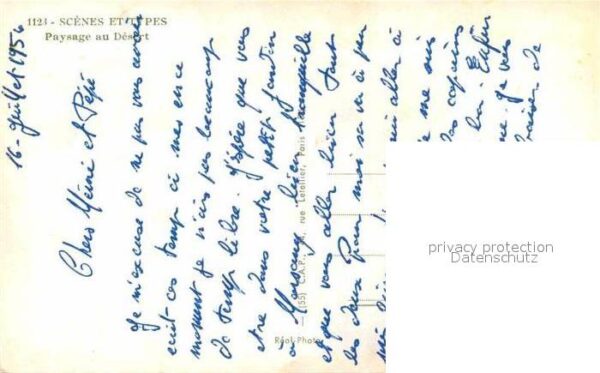 1123 - SCÈNES ET TYPES
Paysage au Désert
16 - Juillet 1956
Chers Mémé et Pépé
Je m'excuse de ne pas vous avoir
écrit ces temps ci mes en ce
moment je n'ais pas beaucoup
de temps libre. J'espère que vous
etre dans votre petit jardin
à bien tranquille
et que vous aller bien tout
les deux Pour moi sa va à peu
aller à
je me suis
des copains
la. Enfin
ne. Je vous
baiser de
(55) C.A.P. rue Letellier, Paris
Réal-Photo
privacy protection
Datenschutz